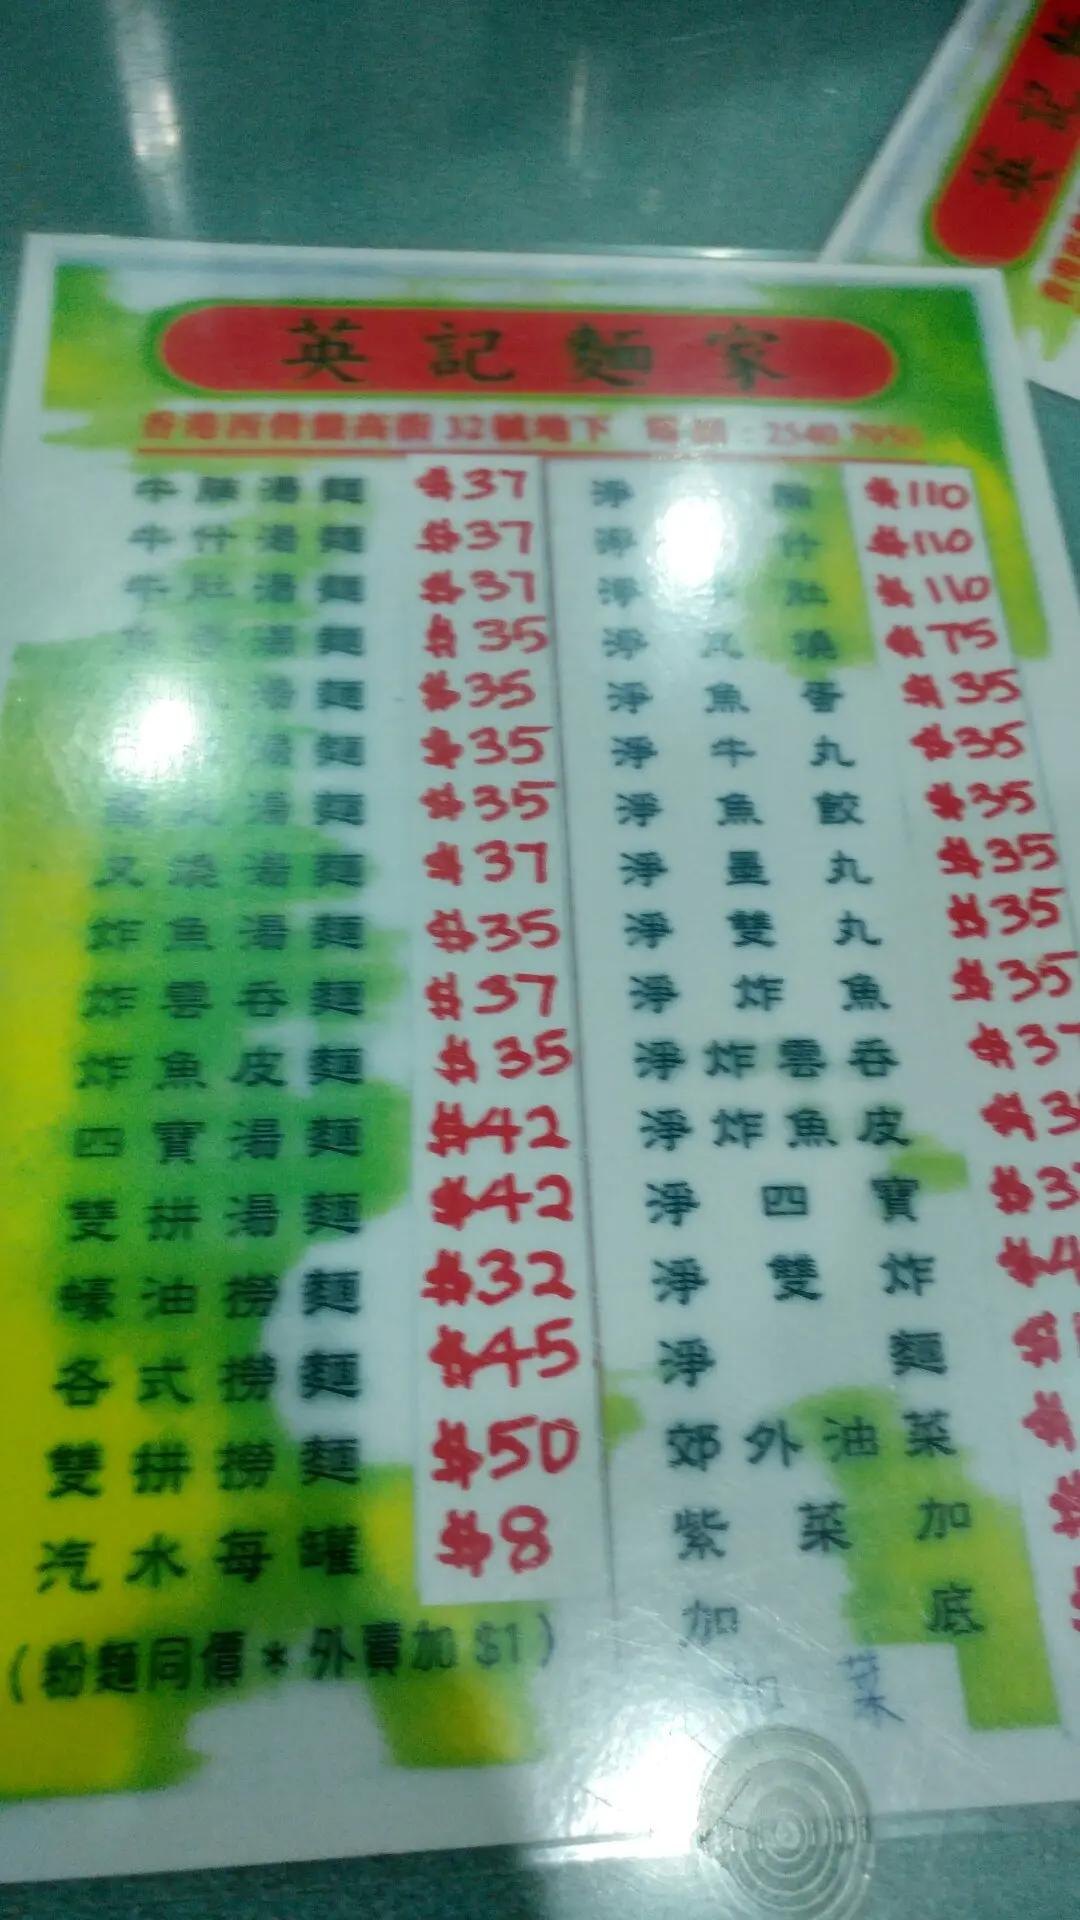 英記麵家
香港西營盤高街32號地下 電話：2540 7950
牛腩湯麵 $37
牛什湯麵 $37
牛肚湯麵 $37
湯麵 $35
湯麵 $35
湯麵 $35
湯麵 $35
叉燒湯麵 $37
炸魚湯麵 $35
炸雲吞麵 $37
炸魚皮麵 $35
四寶湯麵 $42
雙拼湯麵 $42
蠔油撈麵 $32
各式撈麵 $45
雙拼撈麵 $50
汽水每罐 $8
(粉麵同價*外賣加 $1)
淨 腩 $110
淨 什 $110
淨 肚 $110
淨 $75
淨魚蛋 $35
淨牛丸 $35
淨魚餃 $35
淨墨丸 $35
淨雙丸 $35
淨炸魚 $35
淨炸雲吞 $37
淨炸魚皮 $3
淨四寶 $3
淨雙炸 $4
淨麵 $
郊外油菜 $
紫菜加
加底
加菜
英記